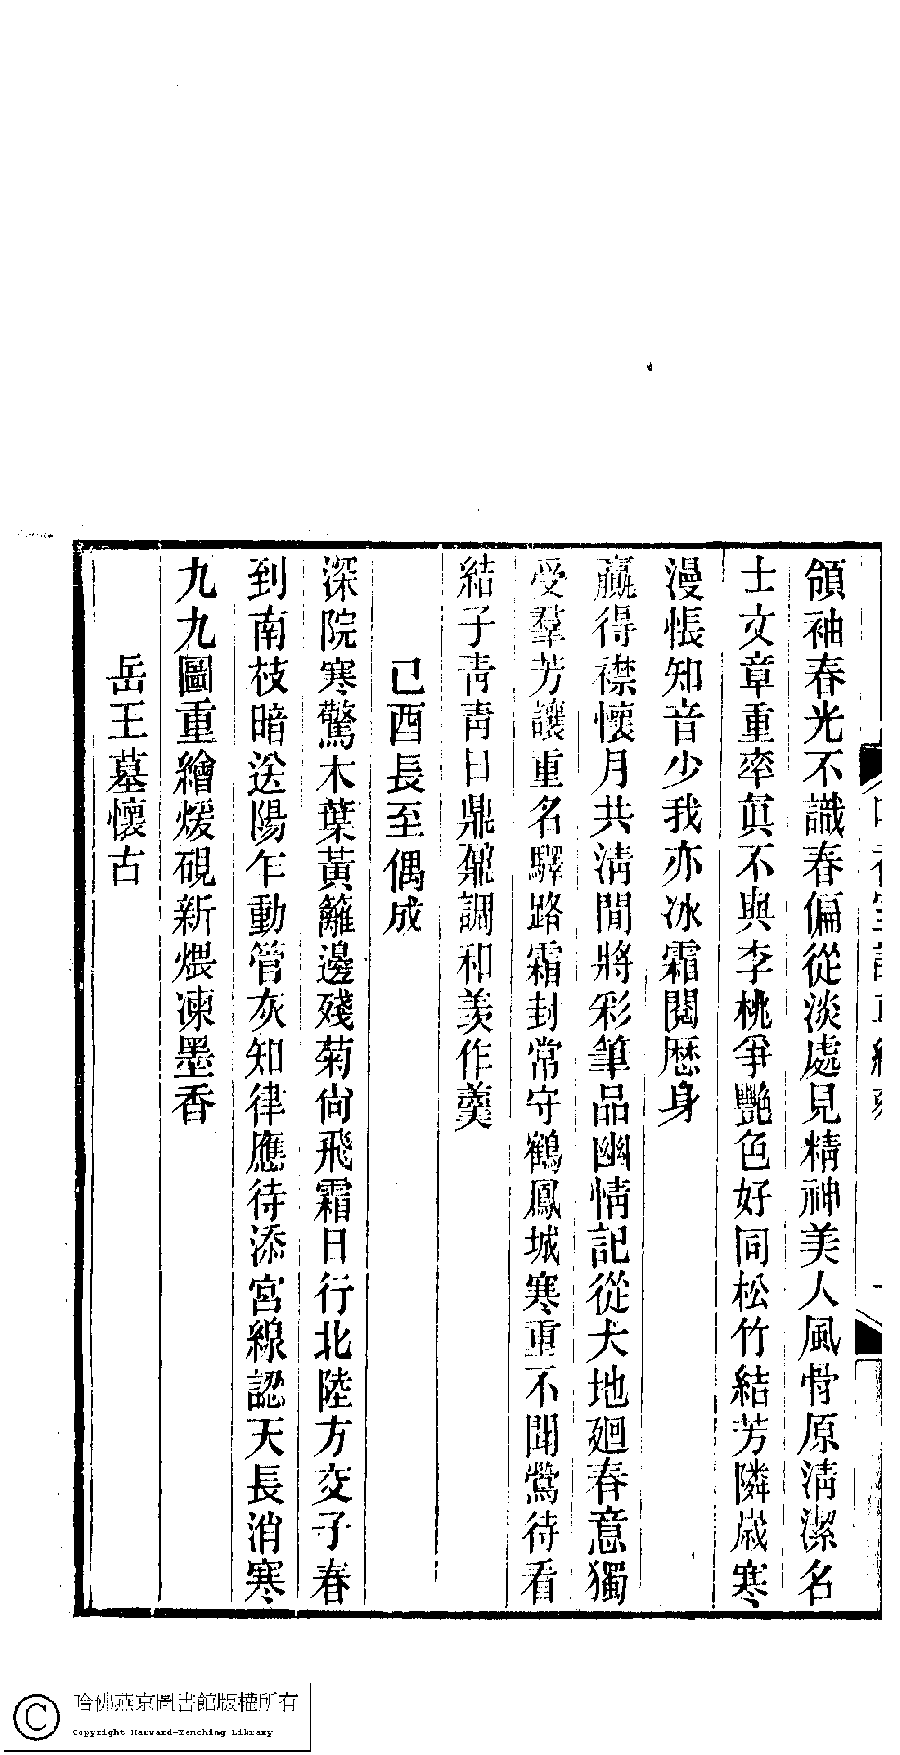 領袖春光不識春偏從淡處見精神美人風骨原清潔名
士文章重率眞不與李桃爭艷色好同松竹結芳隣歲寒
漫悵知音少我亦冰霜閱歷身
贏得襟懷月共淸閒將彩筆品幽情記從大地廻春意獨
受羣芳讓重名驛路霜封常守鶴鳳城寒重不聞鶯待看
結子靑靑日鼎鼐調和羨作羹
己酉長至偶成
深院寒驚木葉黃籬邊殘菊尙飛霜日行北陸方交子春
到南枝暗送陽乍動管灰知律應待添宮線認天長消寒
九九圖重繪煖硯新煨凍墨香
岳王墓懷古
哈佛燕京圖書館版權所有
Copyright Harvard-Yenching Library